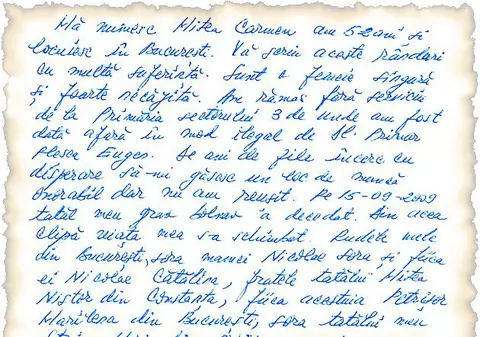 Mă numesc Mitea Carmen am 52 ani și
locuiesc în București. Vă scriu aceste rânduri
cu multă suferință. Sunt o femeie singură
și foarte necăjită. Am rămas fără serviciu
de la Primăria sectorului 3 de unde am fost
dată afară în mod ilegal de dl. Primar
Plesca Eugen. De ani de zile încerc cu
disperare să-mi găsesc un loc de muncă
onorabil dar nu am reușit. Pe 15-09-2009
tatăl meu grav bolnav a decedat. Din acea
clipă viața mea s-a schimbat. Rudele mele
din București, sora mamei Nicolae Sora și fiica
ei Nicolae Cătălina, fratele tatălui Mitea
Nistor din Constanța, fiica acestuia Petrișor
Marilena din București, sora tatălui meu